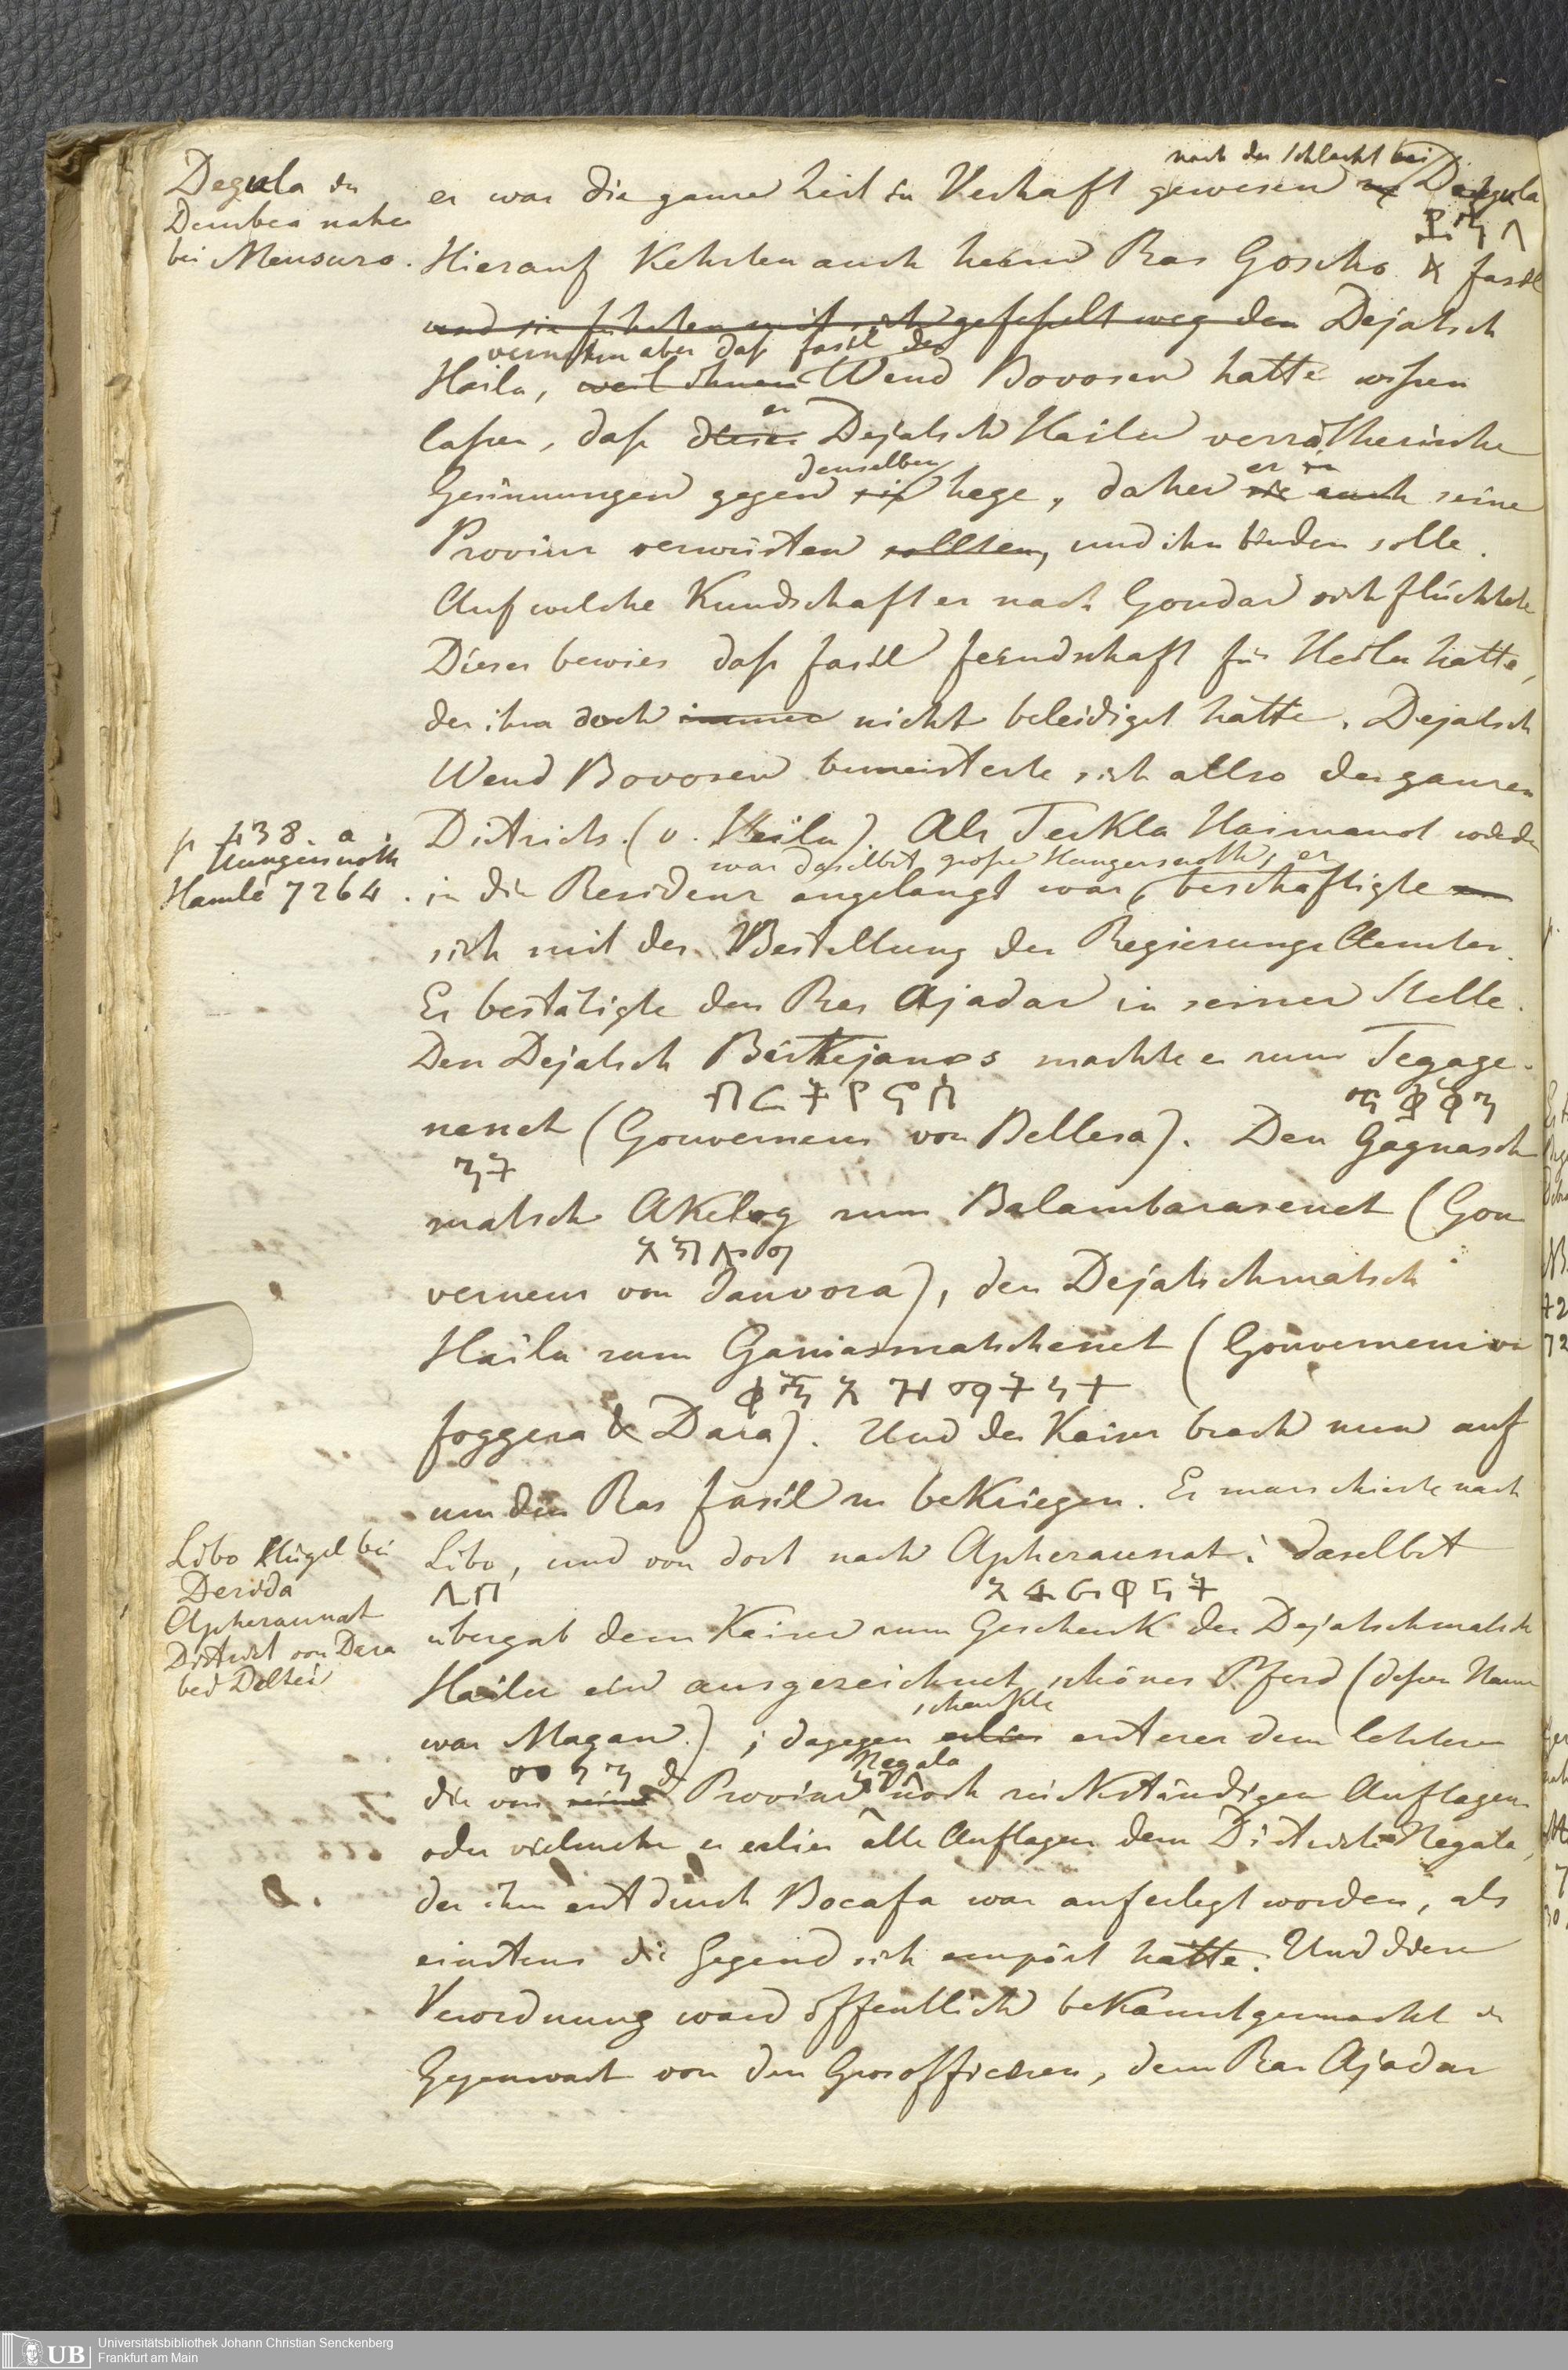 Degula in
Dembea nahe
bei Mensuro.
nach der Schlacht bei
er war die ganze Zeit in Verhaft gewesen Degula
Hierauf Kehrten auch heim Ras Goscho & Fasil
und sie führten mit sich gefeßelt weg den Dejatsch
vernahm aber daß Fasil den
Hailu, weil ihnen Wend Bovosen hatte wißen
er
laßen, daß dieser Dejatsch Hailu verrätherische
denselben er in
Gesinnungen gegen sie hege, daher sie auch seine
Provinz verwüsten sollten, und ihn binden solle.
Auf welche Kundschaft er nach Gondar sich flüchtete
Dieses bewies daß Fasil Feindschaft für Heilu hatte,
der ihm doch immer nicht beleidiget hatte. Dejatsch
Wend Bovosen bemeisterte sich allso der ganzen
p 438. a.
Hungersnoth
Hamlé 7264.
Districts. (v. Heilu). Als Teckla Haimanot wieder
war daselbst große Hungersnoth, er
in die Residenz angelangt war, beschäftigte
sich mit der Bestellung der Regierungs Aemter.
Er bestätigte den Ras Ajadar in seiner Stelle.
Den Dejatsch Birtkejanos machte er zum Tegage-
በርትያኖስ
nenet (Gouverneur von Bellesa). Den Gagnasch
ንት
matsch Akelog zum Balambarasenet (Gou
አካሎግ
verneur von Janvora), den Dejatschmatsch
Hailu zum Ganiasmatschenet (Gouverneur von
ቀኛአዝማችነት
Foggera & Dara). Und der Kaiser brach nun auf
um den Ras Fasil zu beKriegen. Er marschierte nach
Libo Hügel bei
Derida
Apheraunat
District von Dara
bei Delhei
Libo, und von dort nach Apheraunat; daselbst
ሊቦ
übergab dem Kaiser zum Geschenk der Dejatschmatsch
Hailu ein ausgezeichnet schönes Pferd (deßen Name
schenkte
war Magan.); dagegen erließ ersterer dem letztern
መጋን Negala
die von seiner Provinz noch rückständigen Auflagen
oder vielmehr er erließ alle Auflagen dem Districte Negala,
der ihm erst durch Bocafa war auferlegt worden, als
einstens die Gegend sich empört hatte. Und diese
Verordnung ward öffentlich beKannt gemacht in
Gegenwart von den Grosofficieren, dem Ras Ajadar
UB
Universitätsbibliothek Johann Christian Senckenberg
Frankfurt am Main